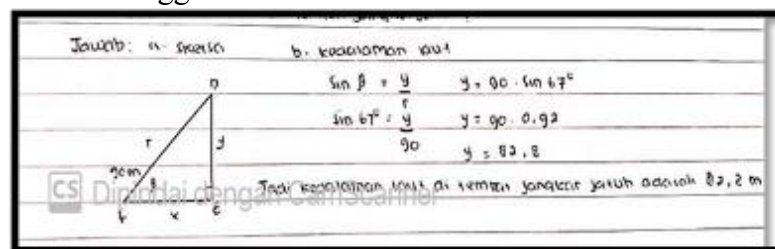 Jawab: a. Sketsa b. kedalaman laut
D
sin β = y/r y = 90 . sin 67°
sin 67° = y/90 y = 90 . 0,92
r y
y = 82,8
90m
β
x E
Jadi kedalaman laut di tempat jangkar jatuh adalah 82,8 m
CS Dipindai dengan CamScanner